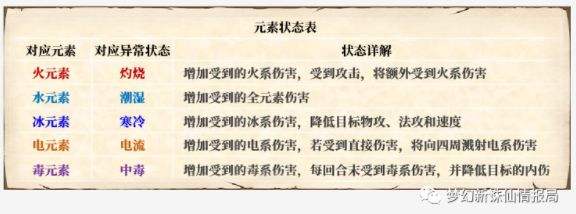 元素状态表
对应元素 对应异常状态 状态详解
火元素 灼烧 增加受到的火系伤害，受到攻击，将额外受到火系伤害
水元素 潮湿 增加受到的全元素伤害
冰元素 寒冷 增加受到的冰系伤害，降低目标物攻、法攻和速度
电元素 电流 增加受到的电系伤害，若受到直接伤害，将向四周溅射电系伤害
毒元素 中毒 增加受到的毒系伤害，每回合末受到毒系伤害，并降低目标的内伤
梦幻新诛仙情报局